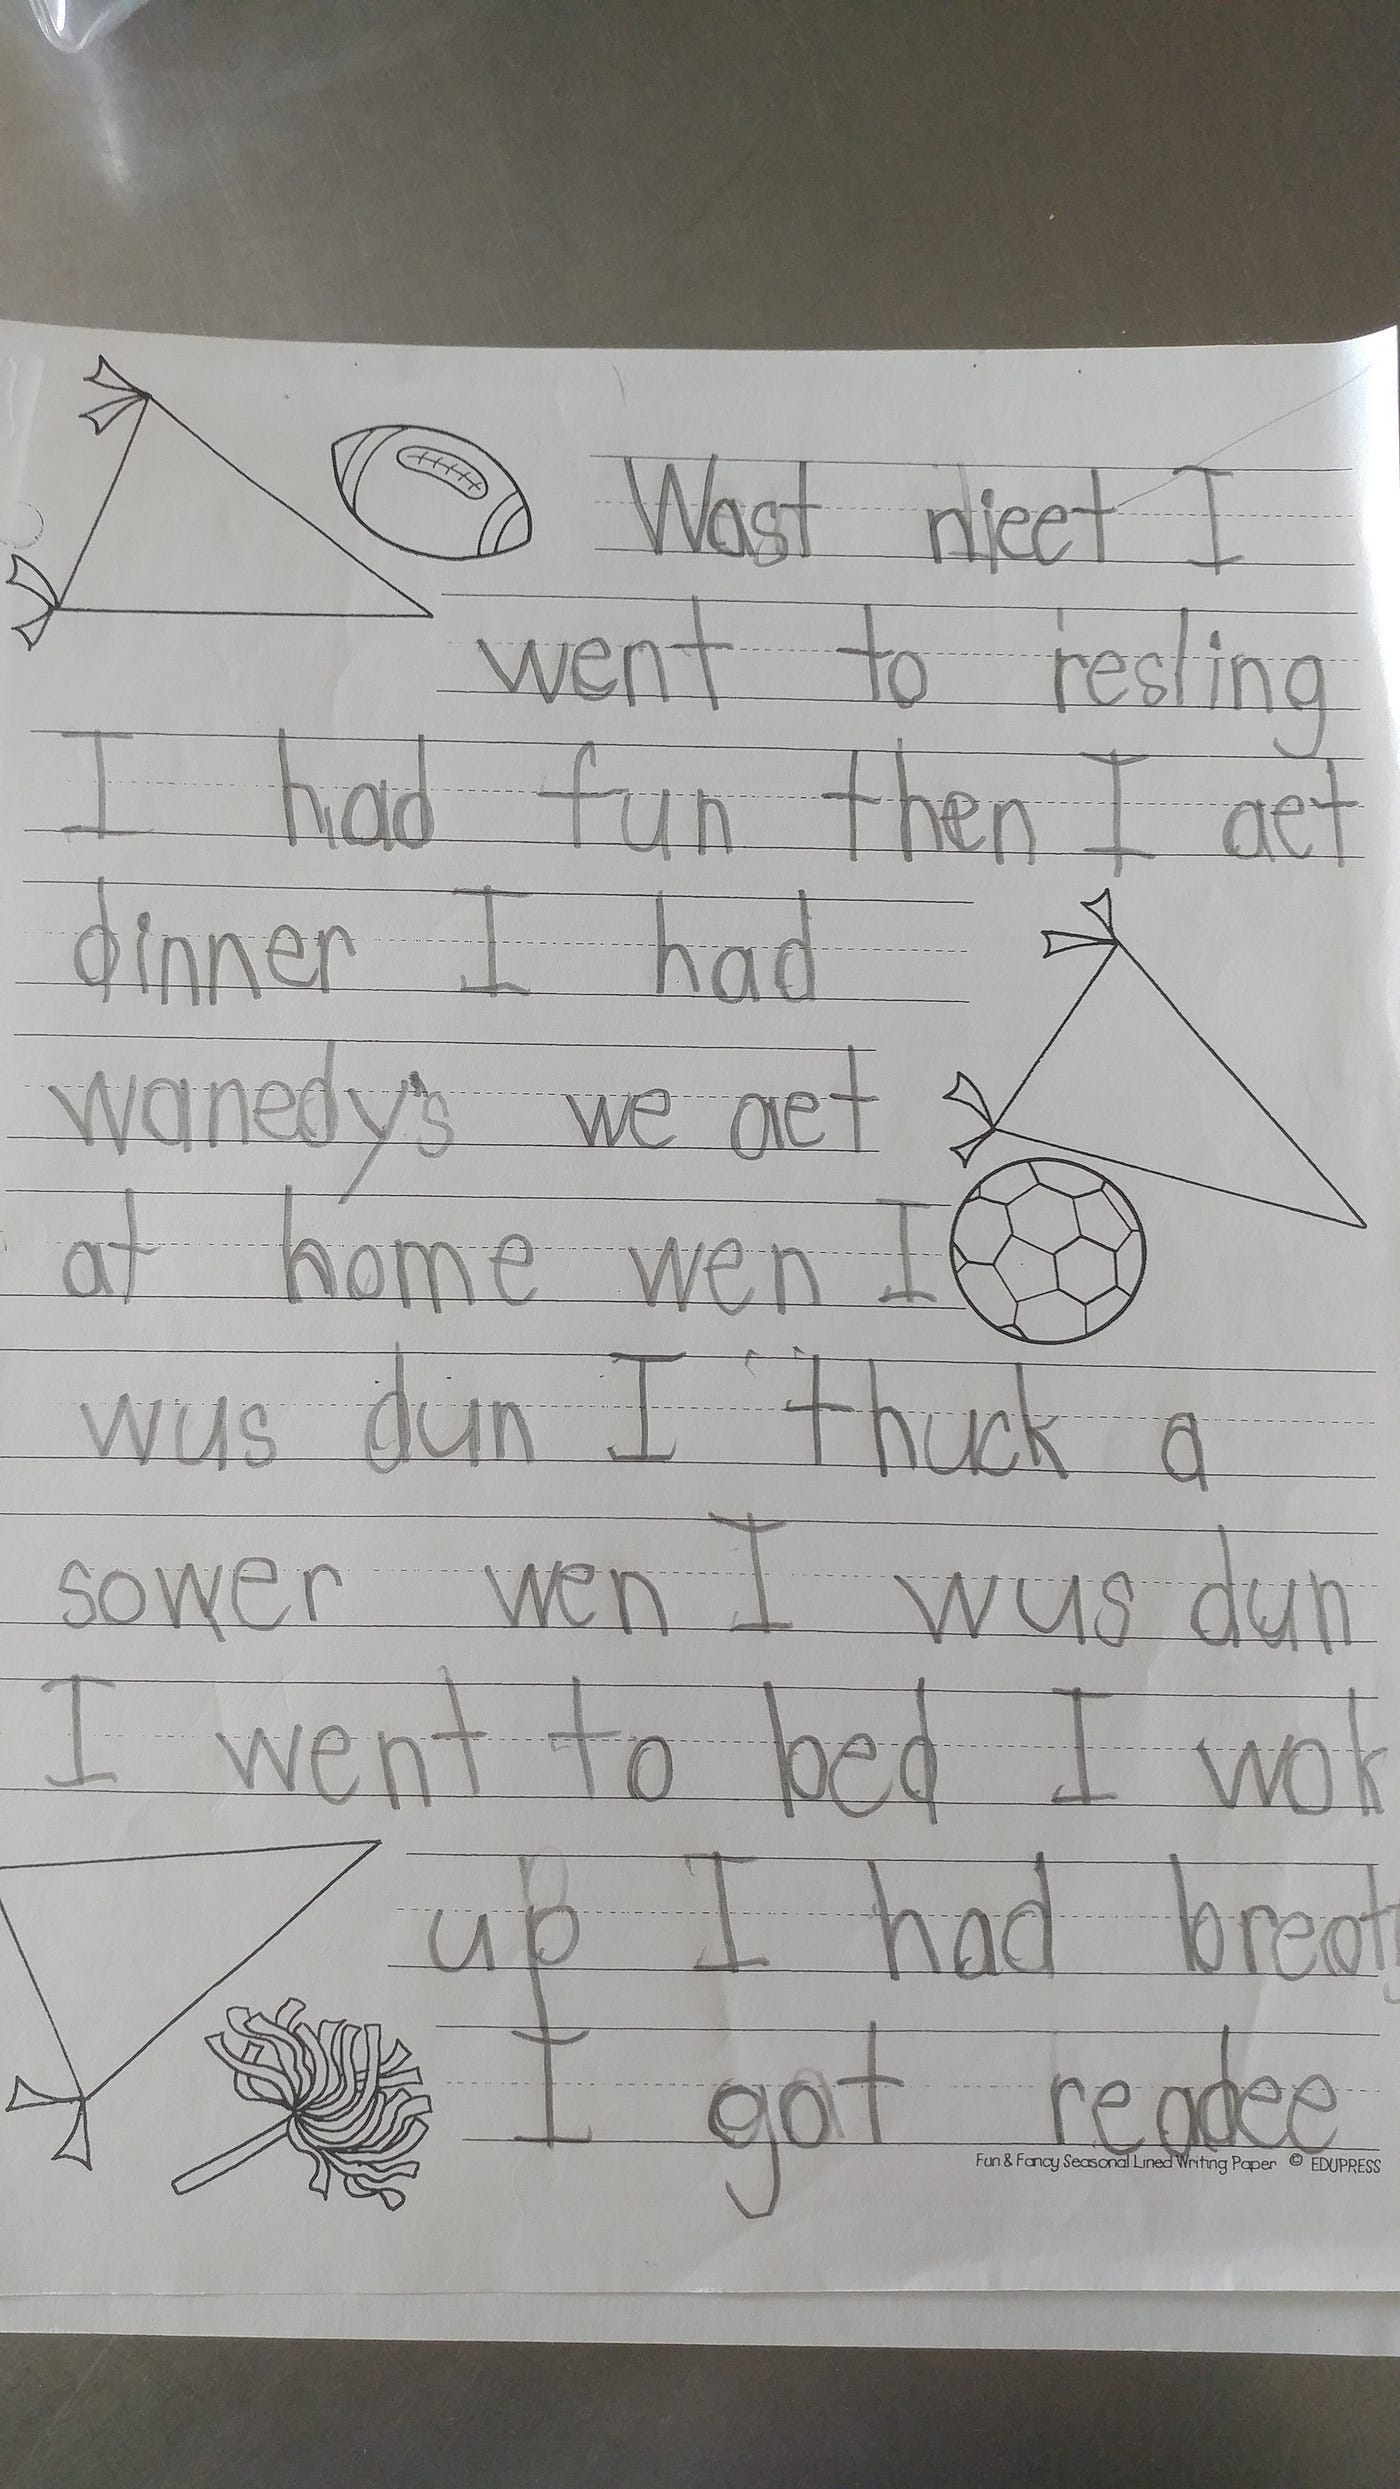 Wast nieet I
went to resling
I had fun then I aet
dinner I had
wanedy's we aet
at home wen I
wus dun I thuck a
sower wen I wus dun
I went to bed I wok
up I had
I got readee
Fun & Fancy Seasonal Lined Writing Paper © EDUPRESS